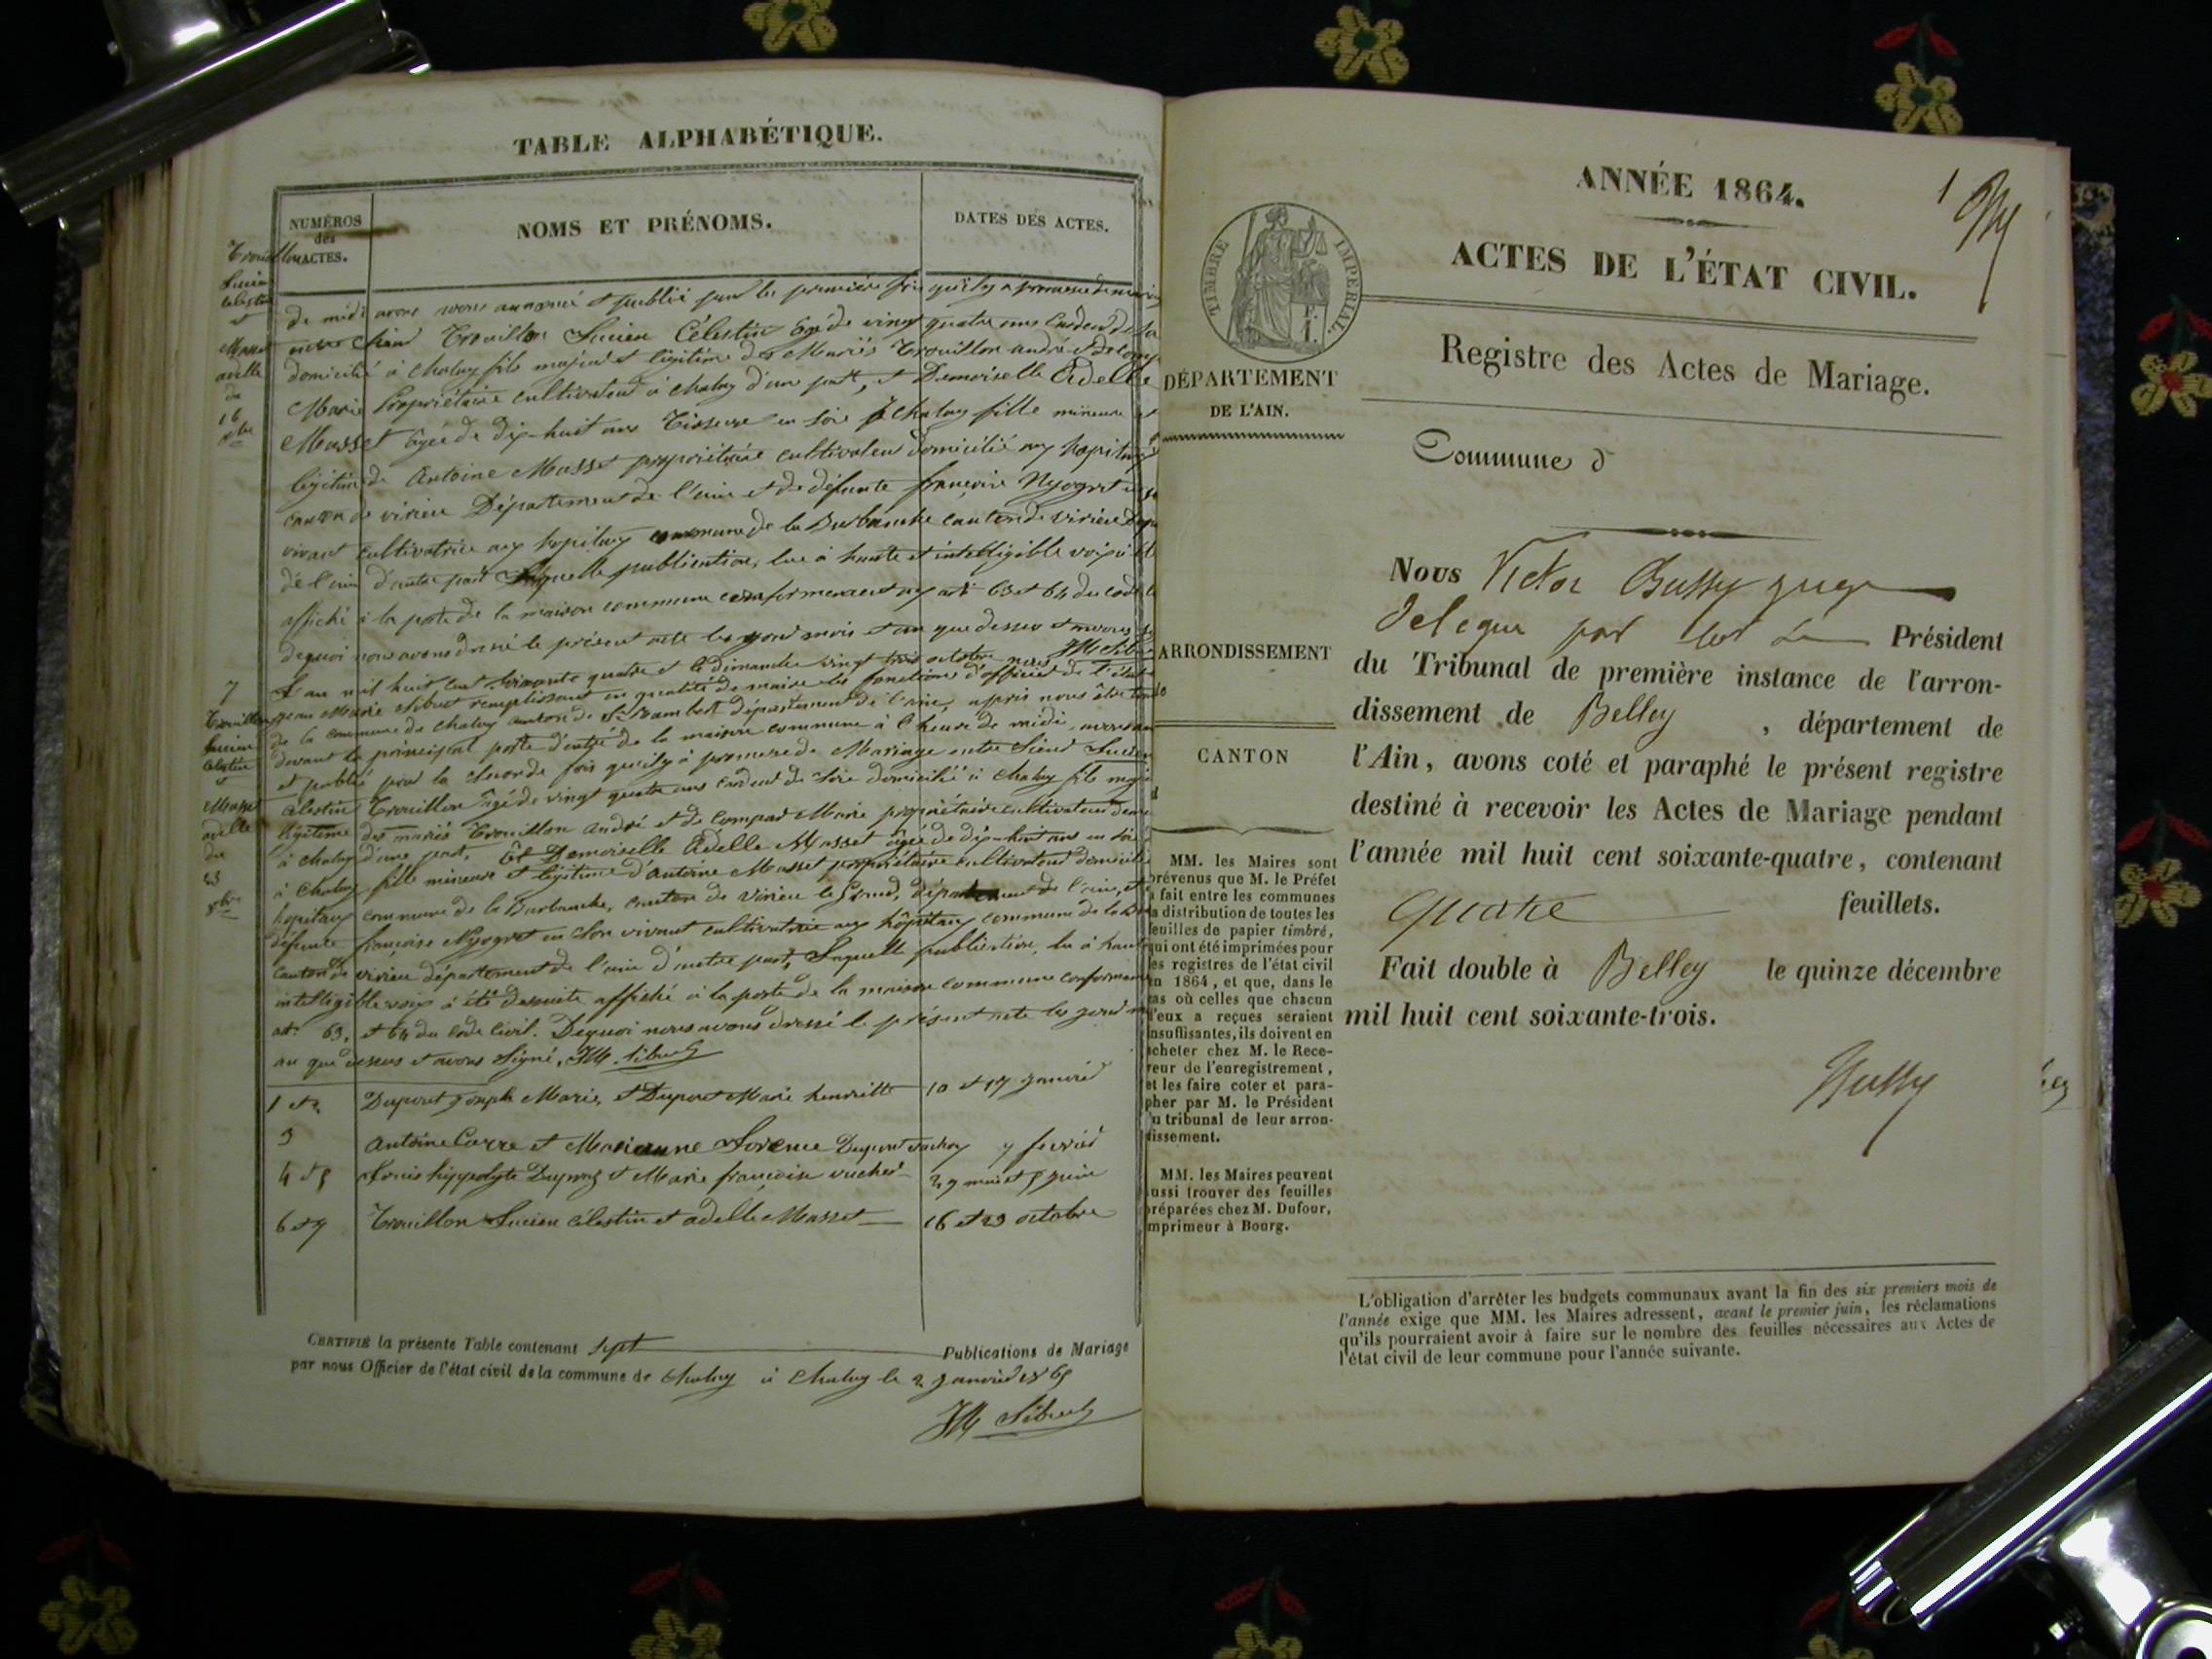 TABLE ALPHABÉTIQUE.
NUMÉROS
des
ACTES.
NOMS ET PRÉNOMS.
DATES DES ACTES.
Trouillon
Lucien
Célestin
et
Masset
adelle
du
16
8bre
de midi avons annoncé et publié pour la première fois qu'il y a promesse de mariage
entre Trouillon Lucien Célestin âgé de vingt quatre ans Cardeur de
domicilié à Chaley fils majeur et légitime des Mariés Trouillon andré et de
Marie Propriétaire cultivateur à Chaley d'une part, et Demoiselle Adelle
Masset âgée de dix-huit ans Tisseuse en soie à Chaley fille mineure et
légitime de Antoine Masset propriétaire cultivateur domicilié aux hopitaux
canton de virieu Département de l'ain et de défunte françoise Nyogret
vivant cultivatrice aux hopitaux commune de la Burbanche canton de virieu
de l'ain d'autre part Laquelle publication, lue à haute et intelligible voix à été
affiché à la porte de la maison commune conformément aux art 63 et 64 du code
dequoi nous avons dressé le présent acte les jour mois et an que dessus et avons
JM Sibuet
7
Trouillon
Lucien
Célestin
et
Masset
adelle
du
23
8bre
L'an mil huit cent soixante quatre et le dimanche vingt trois octobre nous
jean Marie Sibuet remplissant en qualité de maire les fonctions d'officier de l'état
de la commune de Chaley canton de St Rambert département de l'ain, après nous être
devant la principale porte d'entrée de la maison commune à l'heure de midi, avons
et publié pour la seconde fois qu'il y à promesse de Mariage entre Sieur Lucien
Célestin Trouillon âgé de vingt quatre ans cardeur de soie domicilié à Chaley fils
légitime des mariés Trouillon andré et de Marie propriétaire cultivateur
à Chaley d'une part, Et Demoiselle Adelle Masset âgée de dix-huit ans
à Chaley fille mineure et légitime d'Antoine Masset propriétaire cultivateur
hopitaux commune de la Burbanche, canton de Virieu le Grand, département de l'ain, et
défunte françoise Nyogret en son vivant cultivatrice aux hôpitaux commune de la
canton de virieu département de l'ain d'autre part, Laquelle publication, lu à haute
intelligible voix à été desuite affiché à la porte de la maison commune
art. 63, et 64 du code Civil. Dequoi nous avons dressé le présent acte les jour
an que dessus et avons Signé, JM Sibuet
1 et 2 Duporet joseph Marie, et Duporet Marie henriette 10 et 17 janvier
3 Antoine Carre et Marianne Lorence Dupont 7 février
4 et 5 Louis hyppolyte et Marie françoise vucher 29 mai et 5 juin
6 et 7 Trouillon Lucien Célestin et adelle Masset 16 et 23 octobre
CERTIFIÉ la présente Table contenant sept Publications de Mariage
par nous Officier de l'état civil de la commune de Chaley à Chaley le 2 janvier 1865
JM Sibuet
ANNÉE 1864.
1
ACTES DE L'ÉTAT CIVIL.
TIMBRE IMPÉRIAL.
Registre des Actes de Mariage.
DÉPARTEMENT
DE L'AIN.
Commune d
ARRONDISSEMENT
CANTON
MM. les Maires sont
prévenus que M. le Préfet
a fait entre les communes
la distribution de toutes les
feuilles de papier timbré,
qui ont été imprimées pour
les registres de l'état civil
en 1864, et que, dans le
cas où celles que chacun
d'eux a reçues seraient
insuffisantes, ils doivent en
acheter chez M. le Rece-
veur de l'enregistrement,
et les faire coter et para-
pher par M. le Président
du tribunal de leur arron-
dissement.
MM. les Maires peuvent
aussi trouver des feuilles
préparées chez M. Dufour,
imprimeur à Bourg.
Nous Victor juge
delegué par Président
du Tribunal de première instance de l'arron-
dissement de Belley, département de
l'Ain, avons coté et paraphé le présent registre
destiné à recevoir les Actes de Mariage pendant
l'année mil huit cent soixante-quatre, contenant
quatre feuillets.
Fait double à Belley le quinze décembre
mil huit cent soixante-trois.
L'obligation d'arrêter les budgets communaux avant la fin des six premiers mois de
l'année exige que MM. les Maires adressent, avant le premier juin, les réclamations
qu'ils pourraient avoir à faire sur le nombre des feuilles nécessaires aux Actes de
l'état civil de leur commune pour l'année suivante.